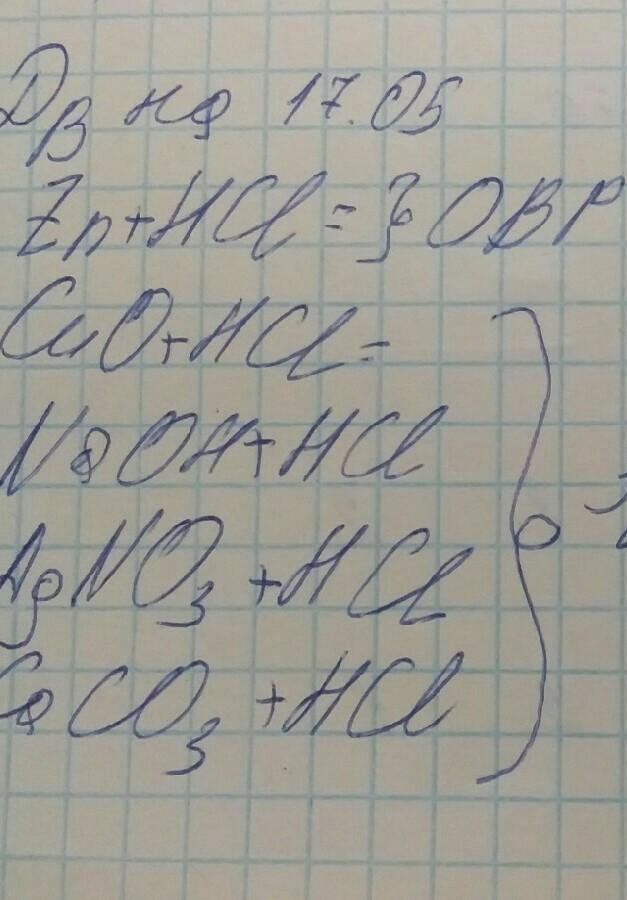 Дв на 17.05
Zn+HCl= } ОВР
CuO+HCl=
NaOH+HCl
AgNO3+HCl
CaCO3+HCl